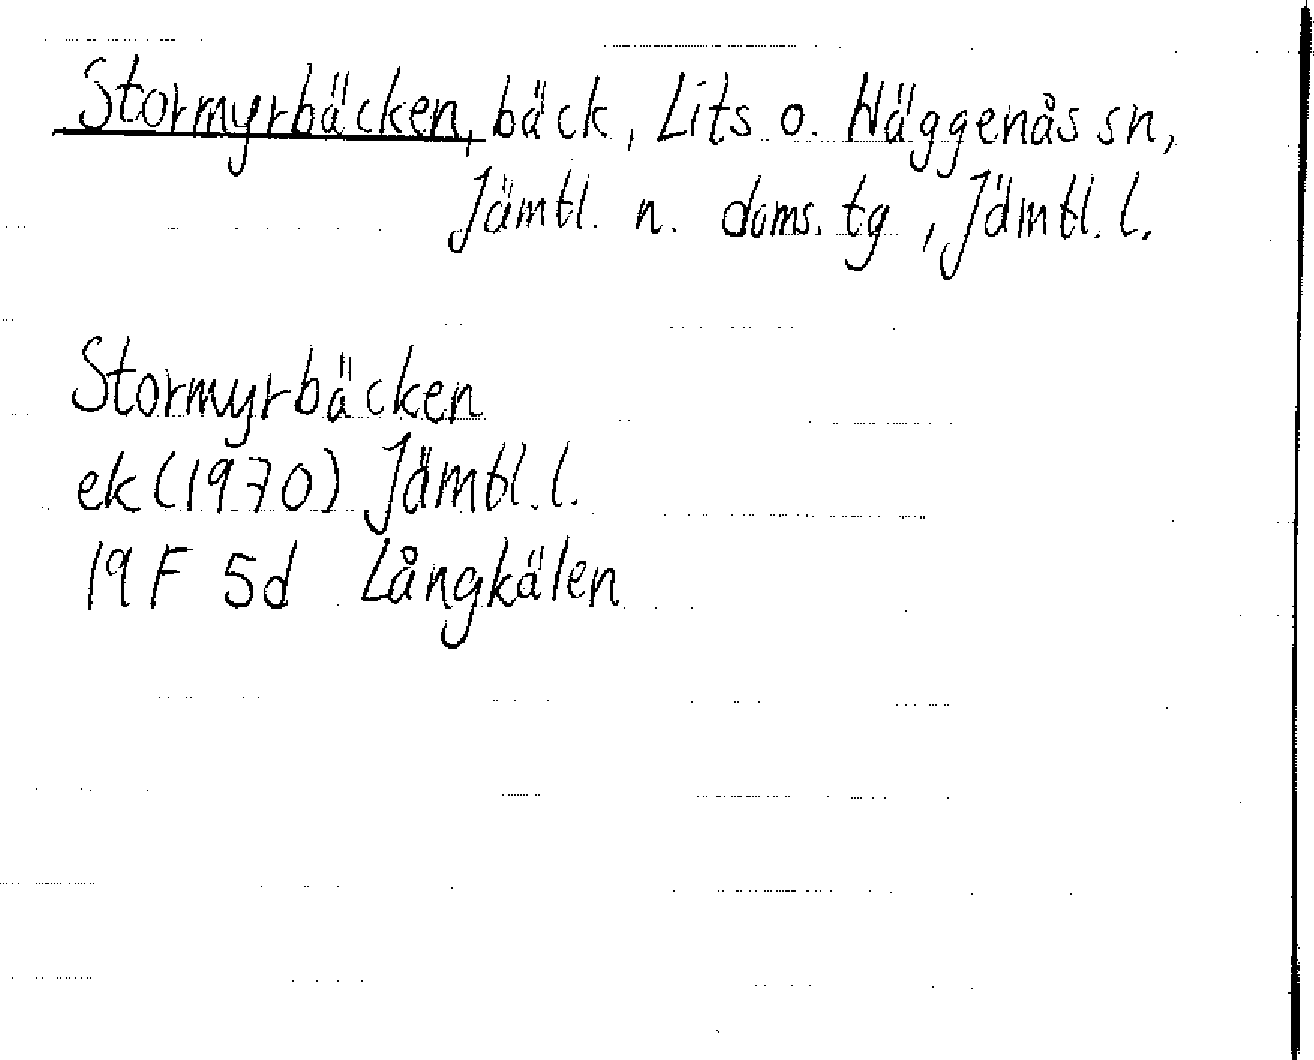 Stormyrbäcken, bäck, Lits o. Häggenås sn,
Jämtl. n. doms. tg, Jämtl. l.
Stormyrbäcken
ek (1970) Jämtl. l.
19 F 5d Långkälen